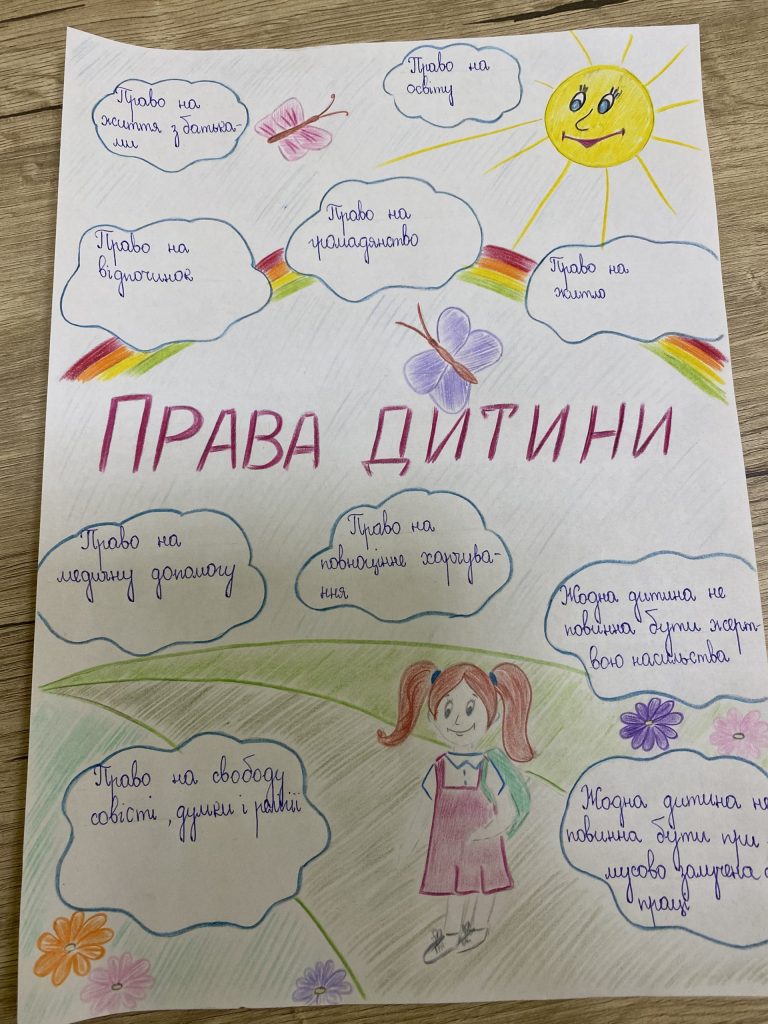 Право на
життя з батька-
ми
Право на
освіту
Право на
відпочинок
Право на
громадянство
Право на
житло
ПРАВА ДИТИНИ
Право на
медичну допомогу
Право на
повноцінне харчува-
ння
Жодна дитина не
повинна бути жерт-
вою насильства
Право на свободу
совісті, думки і релігії
Жодна дитина не
повинна бути при
мусово залучена
праці